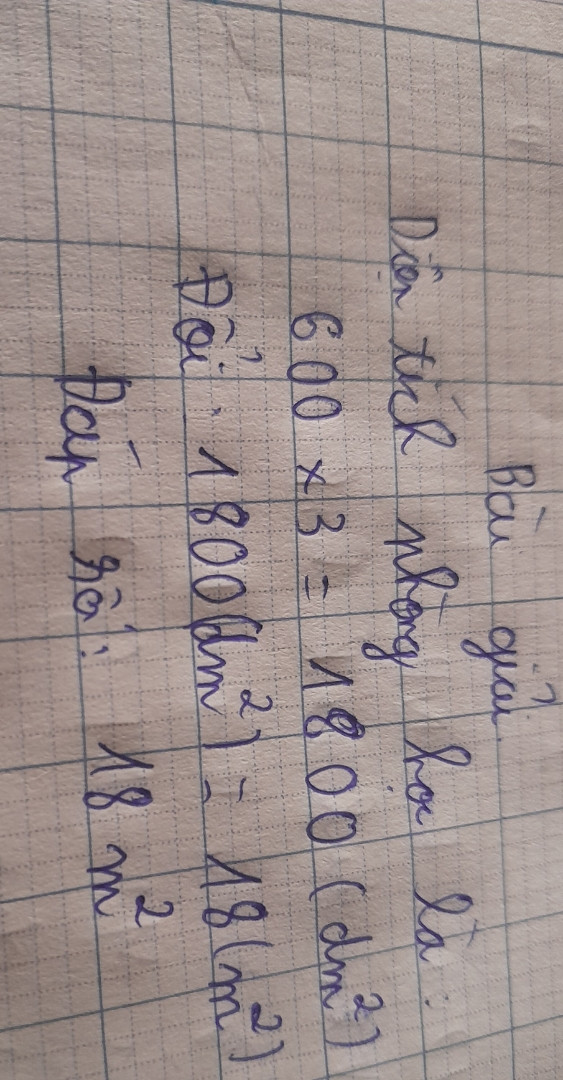 Bài giải.
Diện tích phòng học là:
600 x 3 = 1800 (dm²)
Đổi: 1800(dm²) = 18(m²)
Đáp số: 18 m²